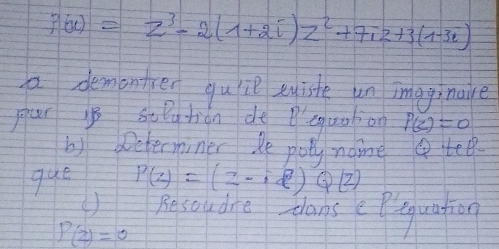 P(z) = z³ - 2(1+2i)z² + 7iz + 3(1-3i)
a demontrer qu'il existe un imaginaire
pur solution de l'equation P(z)=0
b) Determiner le polynome Q tel-
que P(z) = (z - i) Q(z)
c) Resoudre dans C l'equation
P(z) = 0